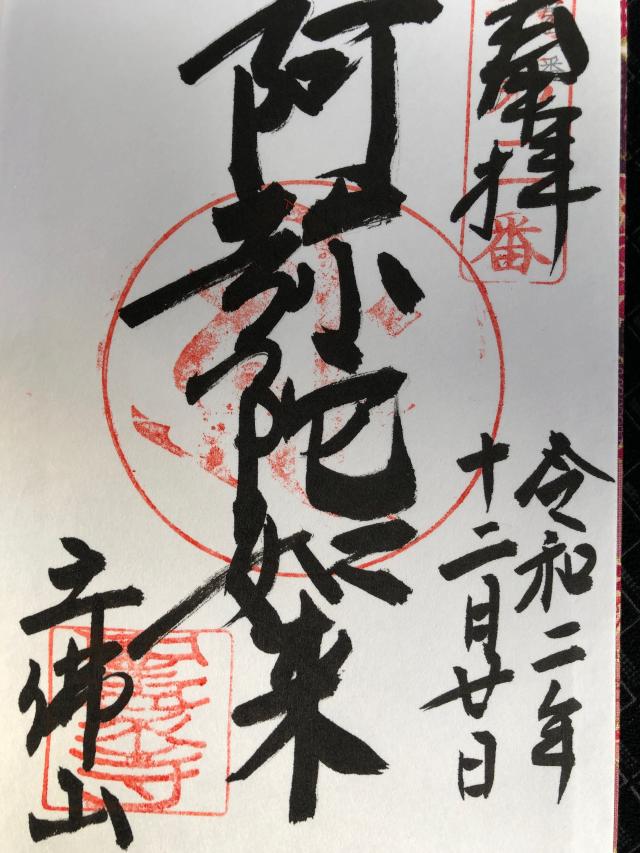 奉拝
番
令和二年
十二月廿日
阿弥陀如来
立佛山